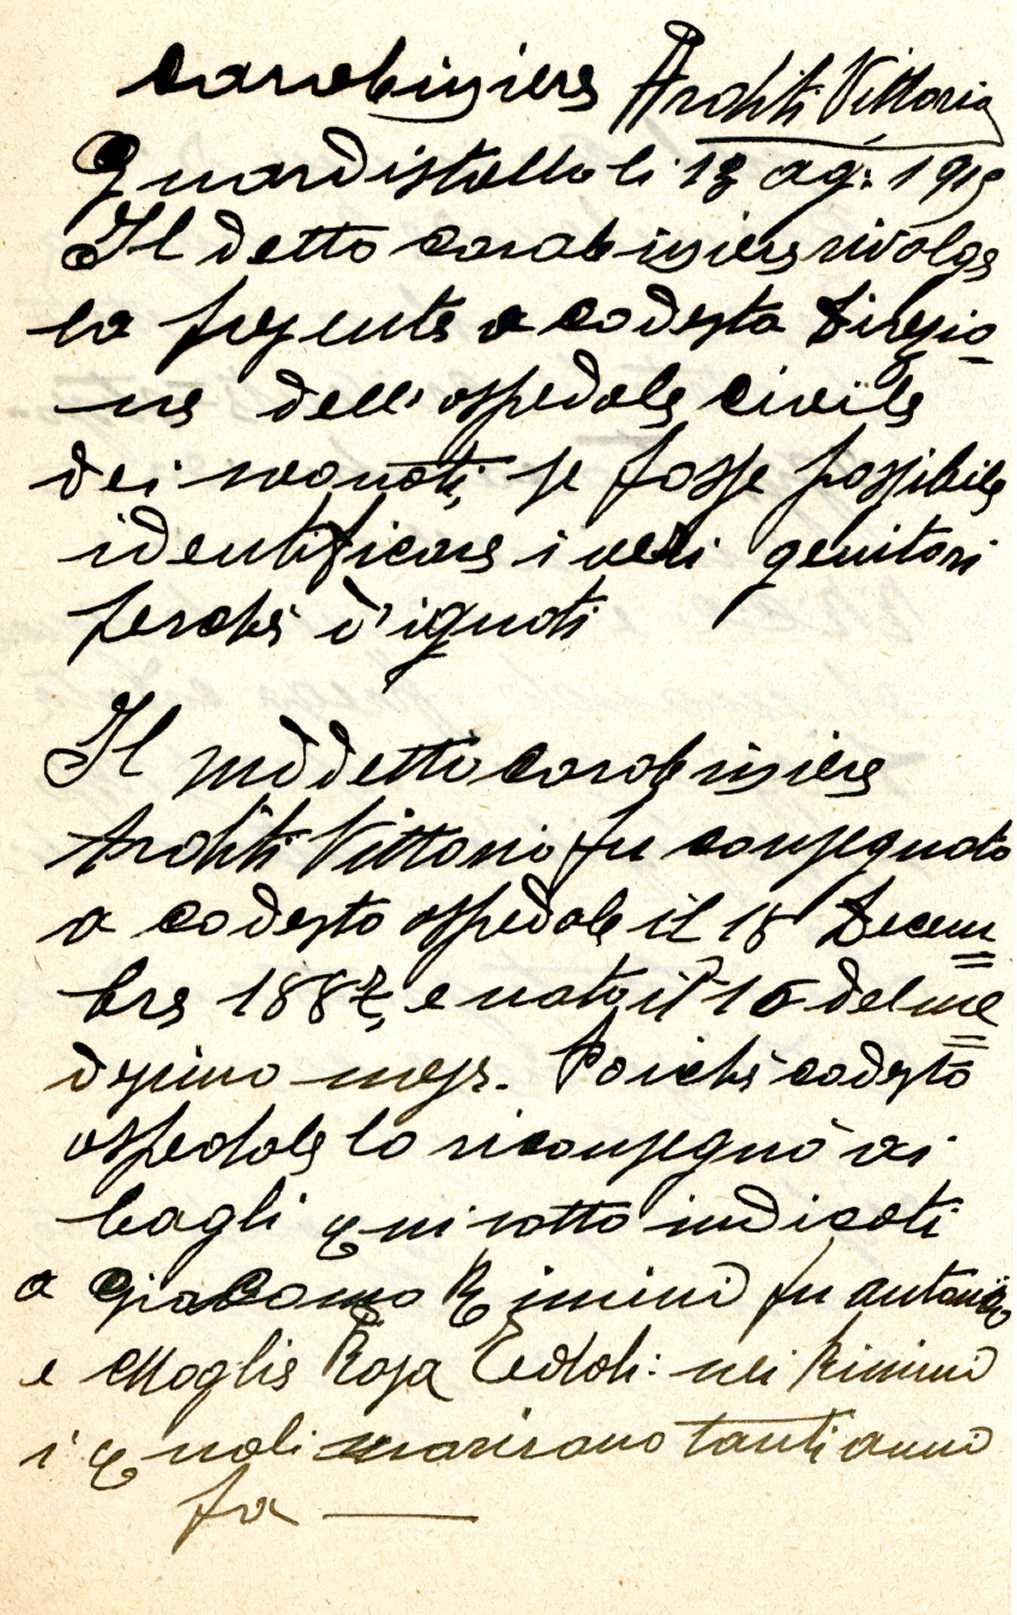 Carabiniere Arditi Vittorio
Guardistallo li 13 ag: 1919
Il detto carabiniere rivolge
la presente a codesta Direzio
ne dell'ospedale civile
dei neonati, se fosse possibile
identificare i veri genitori
perchè d'ignoti
Il suddetto carabiniere
Arditi Vittorio fu consegnato
a codesto ospedale il 18 Decem
bre 1887, e nato il 16 del me
desimo mese. Poichè codesto
ospedale lo riconsegnò ai
bagli qui sotto indicati
a Giacomo Rimini fu antonio
e Moglie Rosa Tedoli: nei Rimini
i quali morirano tanti anni
fa